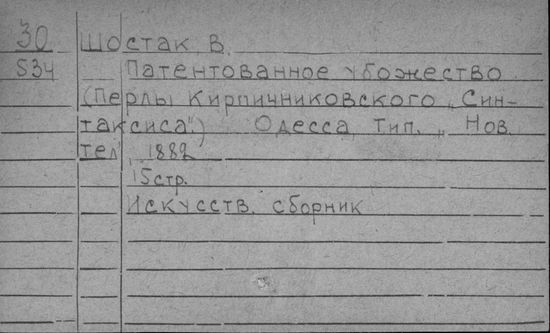 30 Шостак В.
S34 Патентованное убожество
(Перлы Кирпичниковского „Син-
таксиса".) Одесса, Тип. „Нов.
тел", 1882
15 стр.
Искусств. сборник